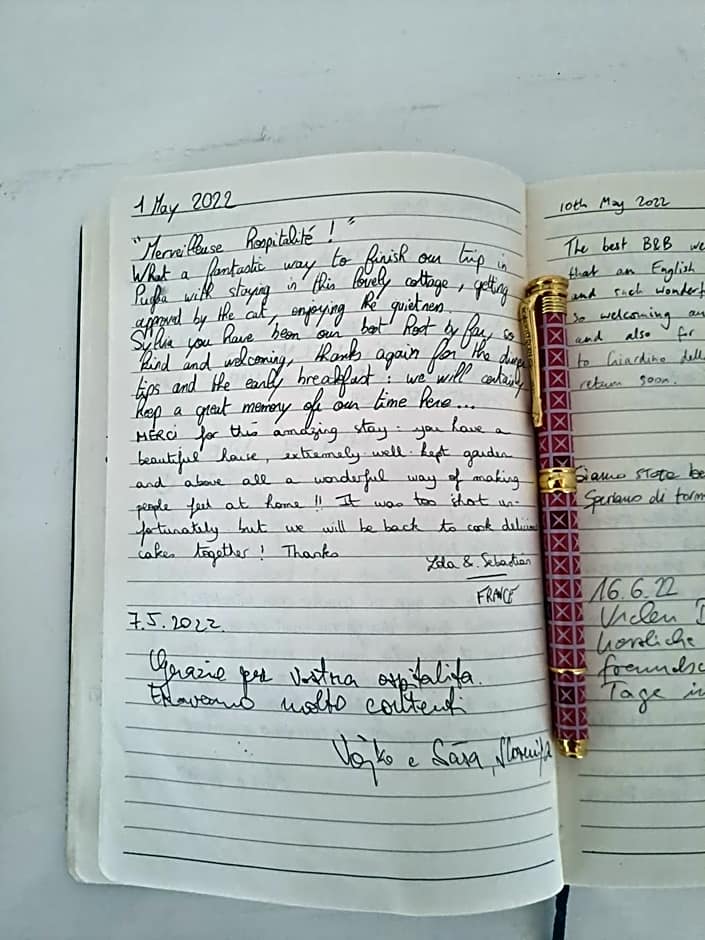 1 May 2022
"Merveilleuse hospitalité ! "
What a fantastic way to finish our trip in
Puglia with staying in this lovely cottage, getting
approval by the cat, enjoying the quietness.
Sylvia you have been our best host by far, so
kind and welcoming, thanks again for the
tips and the early breakfast : we will certainly
keep a great memory of our time here...
MERCI for this amazing stay : you have a
beautiful house, extremely well-kept garden
and above all a wonderful way of making
people feel at home !! It was too short un-
fortunately but we will be back to cook
cakes together ! Thanks
Lola & Sebastian
FRANCE
7.5.2022.
Grazie per vostra ospitalita.
molto contenti
Vojko e Sara,
10th May 2022
The best B&B we
that an English
and such
so welcoming
and also for
to Giardino
return soon.
Siamo state
Speriamo di
16.6.22
Vielen
herzliche
Tage